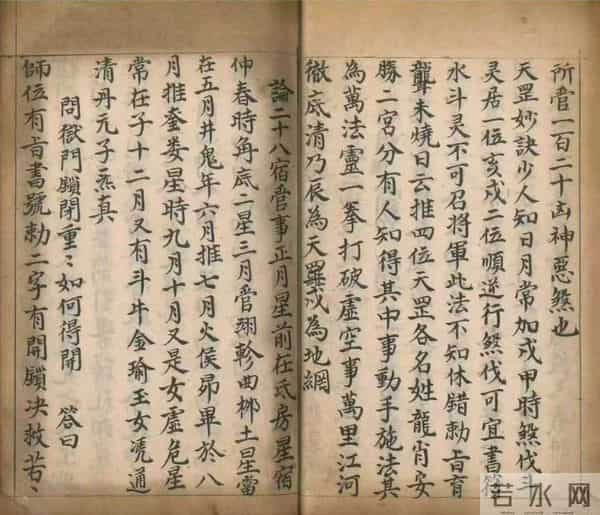 所管一百二十凶神惡煞也
天罡妙訣少人知日月常加戌甲時煞伐斗
灵居一位亥戌二位順逆行煞伐可宜書符
水斗灵不可召將軍此法不知休錯勅旨育
聾未燒日云推四位天罡各名姓龍肖安
勝二宮分有人知得其中事動手施法其
為萬法靈一拳打破虛空事萬里江河
徹底清乃辰為天羅戌為地網
論二十八宿管事正月星前在氐房星宿
仲春時角底二星三月管翊軫曲柳土星當
在五月井鬼年六月推七月火侯昴畢於八
月推奎娄星時九月十月又是女虛危星
常在子十二月又有斗牛金瑜玉女凭通
清丹元子炁真
問獄門鎖閉重〻如何得開 答曰
師位有旨書號勅二字有開鎖决救苦〻
若水网